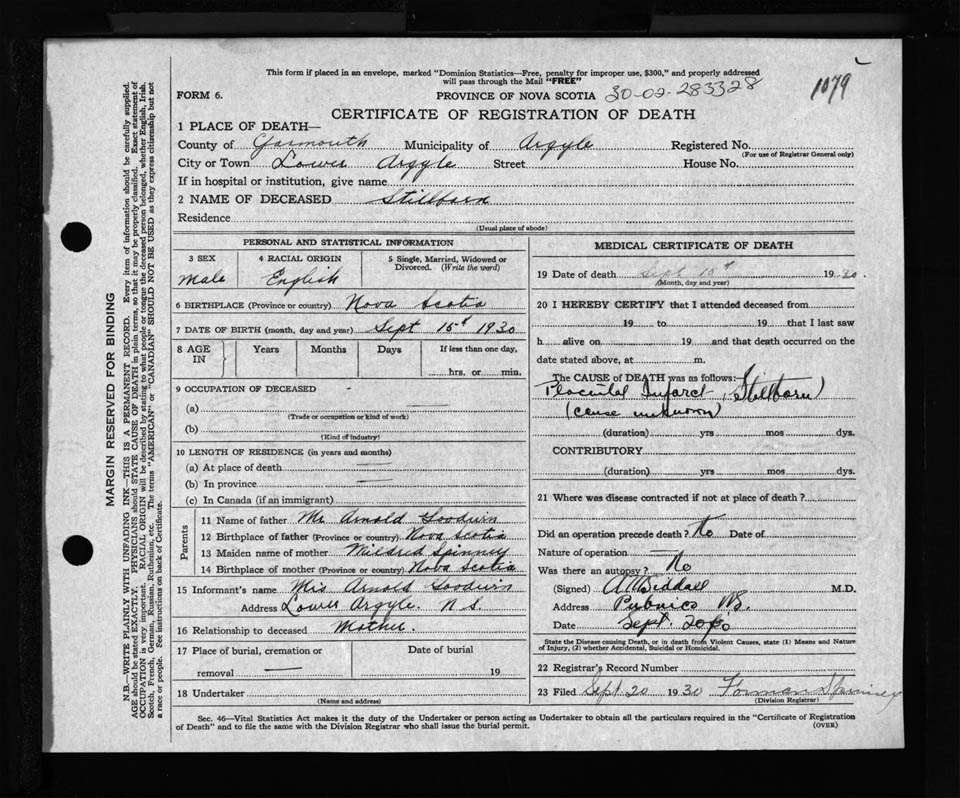 This form if placed in an envelope, marked "Dominion Statistics—Free, penalty for improper use, $300," and properly addressed
will pass through the Mail "FREE"
1079
FORM 6.
PROVINCE OF NOVA SCOTIA 30-02-283328
CERTIFICATE OF REGISTRATION OF DEATH
1 PLACE OF DEATH—
County of Yarmouth Municipality of Argyle Registered No.
(For use of Registrar General only)
City or Town Lower Argyle Street House No.
If in hospital or institution, give name
2 NAME OF DECEASED Stillborn
Residence
(Usual place of abode)
PERSONAL AND STATISTICAL INFORMATION
3 SEX
Male
4 RACIAL ORIGIN
English
5 Single, Married, Widowed or
Divorced. (Write the word)
6 BIRTHPLACE (Province or country) Nova Scotia
7 DATE OF BIRTH (month, day and year) Sept 15th 1930
8 AGE
IN
Years
Months
Days
If less than one day,
hrs. or min.
9 OCCUPATION OF DECEASED
(a)
(Trade or occupation or kind of work)
(b)
(Kind of industry)
10 LENGTH OF RESIDENCE (in years and months)
(a) At place of death
(b) In province
(c) In Canada (if an immigrant)
Parents
11 Name of father Mr Arnold Goodwin
12 Birthplace of father (Province or country) Nova Scotia
13 Maiden name of mother Mildred Spinney
14 Birthplace of mother (Province or country) Nova Scotia
15 Informant's name Mrs Arnold Goodwin
Address Lower Argyle. N.S.
16 Relationship to deceased Mother.
17 Place of burial, cremation or
removal
Date of burial
19
18 Undertaker
(Name and address)
MEDICAL CERTIFICATE OF DEATH
19 Date of death Sept 15th 1930.
(Month, day and year)
20 I HEREBY CERTIFY that I attended deceased from
19 to 19 that I last saw
h alive on 19 and that death occurred on the
date stated above, at m.
The CAUSE of DEATH was as follows:
Placental Infarct (Stillborn)
(cause unknown)
(duration) yrs mos dys.
CONTRIBUTORY
(duration) yrs mos dys.
21 Where was disease contracted if not at place of death?
Did an operation precede death? No Date of
Nature of operation
Was there an autopsy? No
(Signed) M.D.
Address Pubnico NS.
Date Sept. 20/30
State the Disease causing Death, or in death from Violent Causes, state (1) Means and Nature
of Injury, (2) whether Accidental, Suicidal or Homicidal.
22 Registrar's Record Number
23 Filed Sept 20 1930 Forman Spinney
(Division Registrar)
Sec. 46—Vital Statistics Act makes it the duty of the Undertaker or person acting as Undertaker to obtain all the particulars required in the "Certificate of Registration
of Death" and to file the same with the Division Registrar who shall issue the burial permit.
(OVER)
MARGIN RESERVED FOR BINDING
N.B.—WRITE PLAINLY WITH UNFADING INK—THIS IS A PERMANENT RECORD. Every item of information should be carefully supplied.
AGE should be stated EXACTLY. PHYSICIANS should STATE CAUSE OF DEATH in plain terms, so that it may be properly classified. Exact statement of
OCCUPATION is very important. RACIAL ORIGIN will be described by stating to what people or tongue the deceased person belonged, whether English, Irish,
Scotch, French, German, Russian, Ruthenian, etc. The terms "AMERICAN" or "CANADIAN" SHOULD NOT BE USED as they express citizenship but not
a race or people. See instructions on back of Certificate.